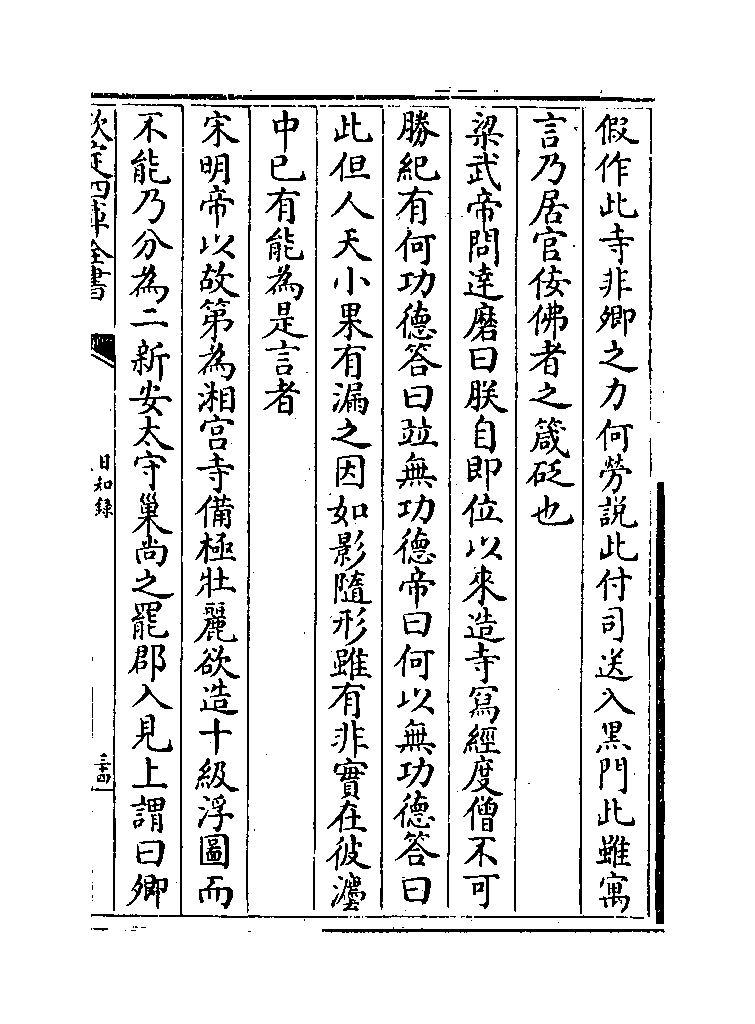 假作此寺非卿之力何勞説此付司送入黒門此雖寓
言乃居官佞佛者之箴砭也
梁武帝問達磨曰朕自即位以來造寺寫經度僧不可
勝紀有何功德答曰竝無功德帝曰何以無功德答曰
此但人天小果有漏之因如影隨形雖有非實在彼灋
中已有能為是言者
宋明帝以故第為湘宫寺備極壯麗欲造十級浮圖而
不能乃分為二新安太守巢尚之罷郡入見上謂曰卿
欽定四庫全書
日知録
三十四